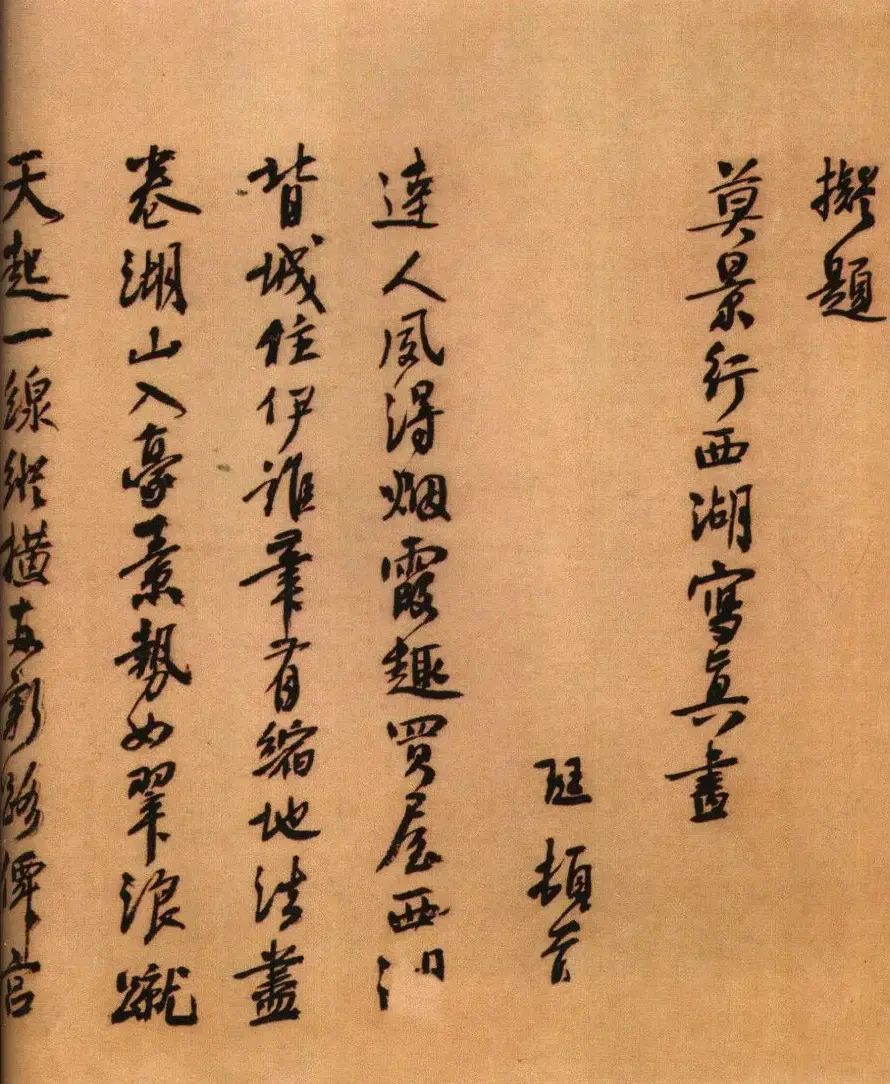 擬題
莫景行西湖寫真畫
珽頓首
達人夙得烟霞趣買屋西湖
背城住伊誰筆有縮地法盡
卷湖山入豪素勢如翠浪蹴
天起一線縱橫